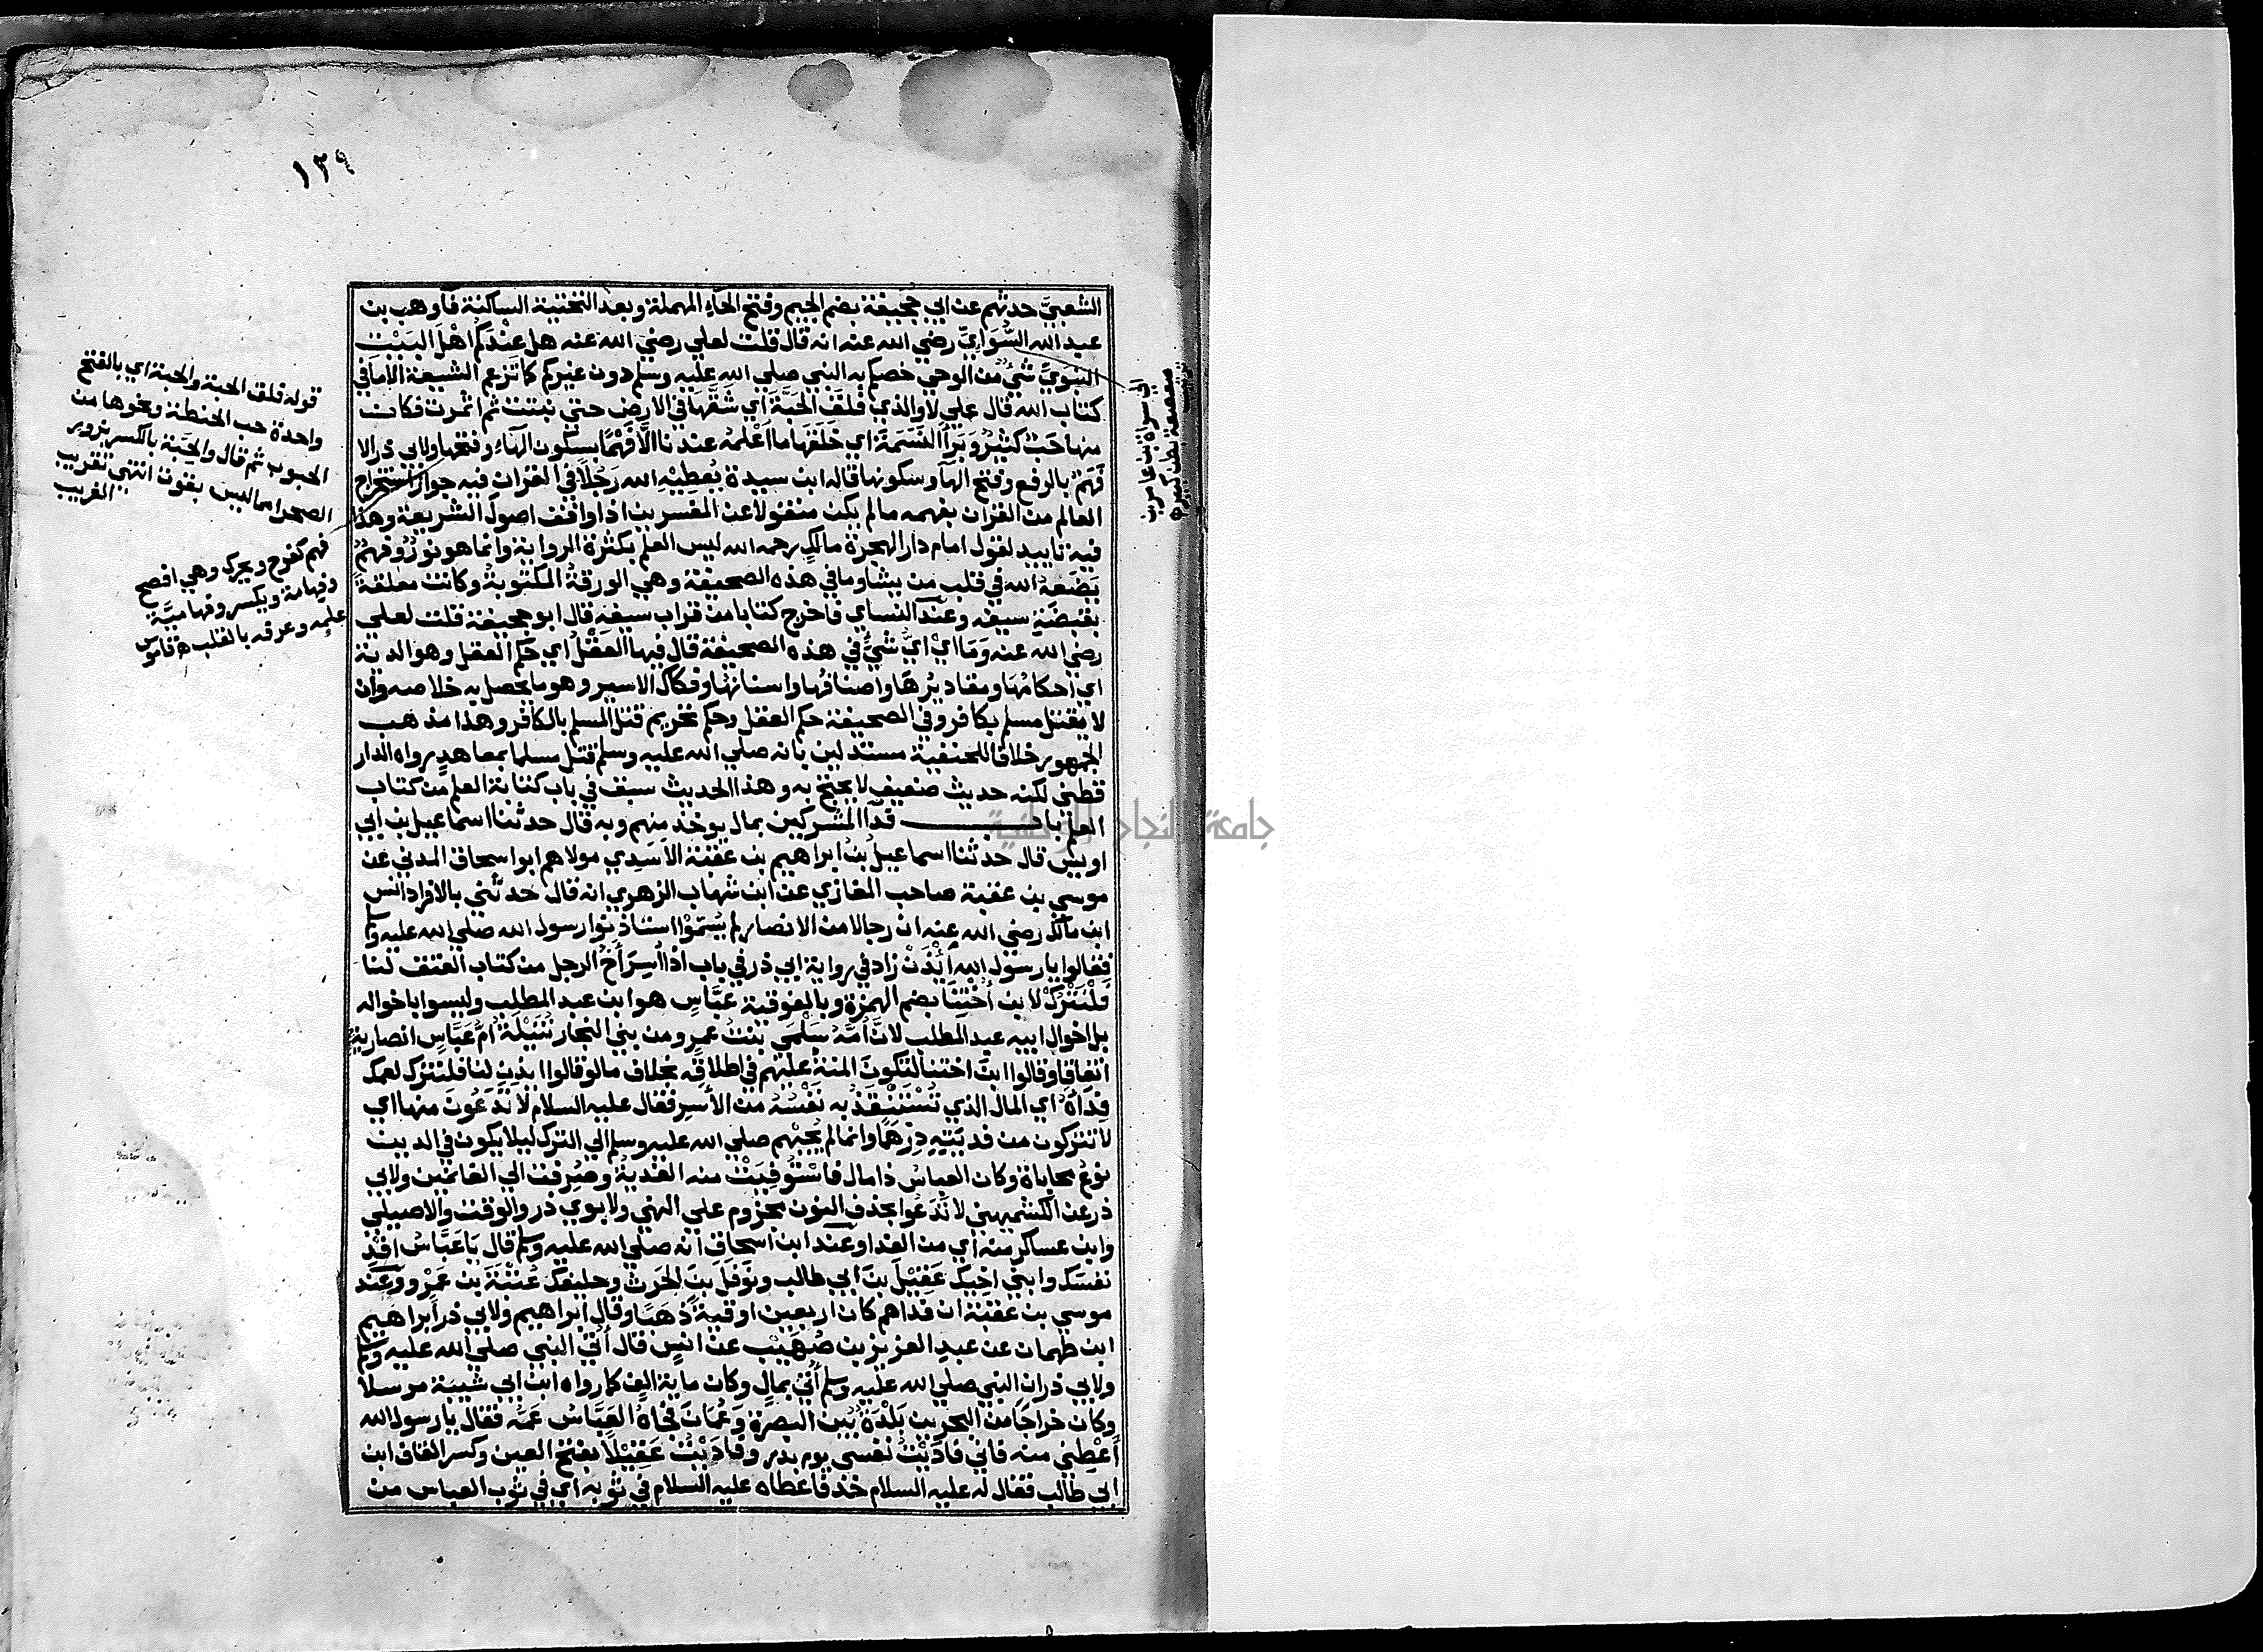 ١٢٩
الشعبيَّ حدثهم عن ابي جحيفة بضم الجيم وفتح الحاء المهملة وبعد التحتية الساكنة فا وهب بن
عبد الله السُّوَاءِيّ رضي الله عنه انه قال قلت لعلي رضي الله عنه هل عندكم اهْلَ البَيْت
النبويّ شيءٌ من الوحي خصكم به النبي صلي الله عليه وسلم دون غيركم كما تزعم الشيعة الا ما في
كتاب الله قال علي لا والذي فلقَ الحَبَّةَ اي شقَّها في الارض حتي نبتت ثم اثمرت فكان
منها حَبٌّ كثيرٌ وبَرَأَ النَّسَمَةَ اي خَلَقَها ما أعْلمُه عندنا الَّا فَهْمًا بسكون الهآء وفتحها ولابي ذر الا
فَهَمٌ بالرفع وفتح الهآ وسكونها قاله ابن سيدة يُعطِيْهِ الله رَجُلًا في القران فيه جواز استخراج
العالم من القران بفهمه مالم يكن منقولا عن المفسرين اذا وافق اصول الشريعة وهذا
فيه تاييد لقول امام دار الهجرة مالك رحمه الله ليس العلم بكثرة الرواية وانما هو نورٌ وفهمٌ
يَضَعُهُ الله في قلب من يشا وما في هذه الصحيفة وهي الورقة المكتوبة وكانت معلقة
بقبضَةِ سيفه وعند النساي فاخرج كتابا من قراب سيفه قال ابو جحيفة قلت لعلي
رضي الله عنه ومَا اي ايُّ شيءٍ في هذه الصحيفة قال فيها العَقْلُ اي حكم العقل وهو الدية
اي احكامُها ومقاديرُها واصنافُها واسنانها وفكاك الاسير وهو ما يحصل به خلاصه وان
لا يقتل مسلم بكافر وفي الصحيفة حكم العقل وحكم تحريم قتل المسلم بالكافر وهذا مذهب
الجمهور خلافا للحنفية مستدلين بانه صلي الله عليه وسلم قتل مسلما بمعاهدٍ رواه الدار
قطني لكنه حديث ضعيف لا يحتج به وهذا الحديث سبق في باب كتابة العلم من كتاب
العلم باب فدآ المشركين بمال يوخذ منهم وبه قال حدثنا اسماعيل بن ابي
اويس قال حدثنا اسماعيل بن ابراهيم بن عقبة الاسدي مولاهم ابو اسحاق المدني عن
موسي بن عقبة صاحب المغازي عن ابن شهاب الزهري انه قال حدثني بالافراد انس
ابن مالك رضي الله عنه ان رجالا من الانصار لم يُسَمَّوْا استاذنوا رسول الله صلي الله عليه وسلم
فقالوا يا رسول الله ائذَنْ زاد في رواية ابي ذر في باب اذا اسِرَ أخُ الرجل من كتاب العتق لنا
فَلْنَتْرُكْ لابن اُختِنَا بضم الهمزة وبالفوقية عبَّاسٍ هو ابن عبد المطلب وليسوا باخواله
بل اخوال ابيه عبد المطلب لانَّ اُمَّهُ سَلْمَي بنت عمرٍو من بني النجار نُتَيْلَةُ اُمُّ عَبَّاسٍ انصارية
اتفاقا وقالوا ابن اختنا لتكونَ المنة عليهم في اطلاقه بخلاف ما لو قالوا ايذن لنا فلنترك لعمك
فِدَآءَهُ اي المال الذي تُسْتَنْقَذُ به نَفْسُهُ من الأسرِ فقال عليه السلام لا تَدَعُونَ منها اي
لا تتركون من فديَتِهِ دِرْهَمًا وانما لم يُجبْهم صلي الله عليه وسلم الي الترك ليلا يكون في الدين
نوعُ محاباة وكان العباس ذا مال فاسْتُوفِيَتْ منه الفدية وصُرِفت الي الغانمين ولابي
ذر عن الكشميهني لا تَدَعُوا بحذف النون مجزوم علي النهي ولابوي ذر والوقت والاصيلي
وابن عساكر منه اي من الفدا وعند ابن اسحاق انه صلي الله عليه وسلم قال يا عَبَّاسُ افْدِ
نفسَك وابني اخيك عَقِيْلَ بنَ ابي طالب ونوفلَ بنَ الحرث وحليفك عُتْبَةَ بن عمرٍو وعند
موسي بن عقبة ان فداهم كان اربعين اوقية ذهَبًا وقال ابراهيم ولابي ذر ابراهيم
ابن طهمان عن عبدِ العزيز بن صُهَيْبٍ عن انسٍ قال أُتِيَ النبي صلي الله عليه وسلم
ولابي ذر ان النبي صلي الله عليه وسلم أُتِيَ بمالٍ وكان ماية الف كما رواه ابن ابي شيبة مرسلا
وكان خراجًا من البحرين بَلْدَةٌ بين البصرة وعُمَان فجاءهُ العَبَّاس عمّه فقال يا رسول الله
أعْطِني منه فاني فاديْتُ نفسي يوم بدر وفاديْتُ عَقِيْلًا بفتح العين وكسر القاف ابن
ابي طالب فقال له عليه السلام خذ فاعطاه عليه السلام في ثوبه اي في ثوب العباس من
قوله فلق الحبة والحبة اي بالفتح
واحدة حب الحنطة ونحوها من
الحبوب ثم قال والحِبَّة بالكسر بزور
الصحرا مما ليس بقوت انتهي تقريب
الغريب
فهم كفرح ويحرك وهي افصح
وفهامة ويكسر وفهامِيَّة
علِمه وعرفه بالقلب ه قاموس
الي سواة بن عامر بن
صعصعة بطن كبير